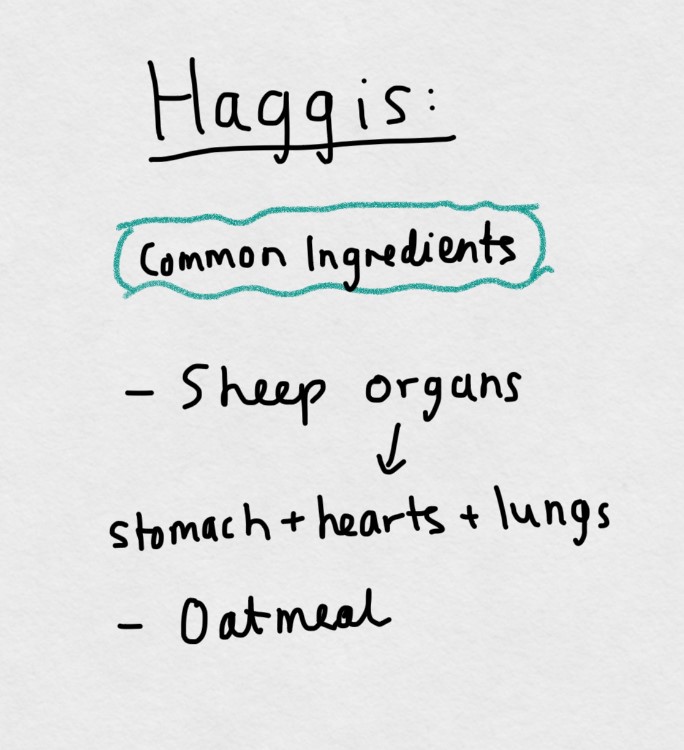 Haggis:
Common Ingredients
- Sheep organs
↓
stomach + hearts + lungs
- Oatmeal